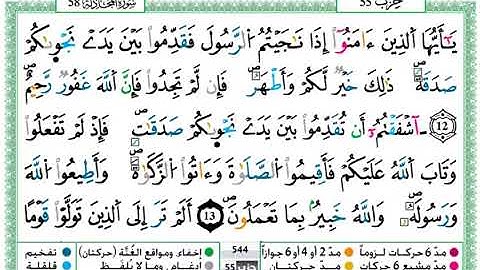 سورة المجادلة 58 حزب 55
يَٰٓأَيُّهَا ٱلَّذِينَ ءَامَنُوٓاْ إِذَا نَٰجَيۡتُمُ ٱلرَّسُولَ فَقَدِّمُواْ بَيۡنَ يَدَيۡ نَجۡوَىٰكُمۡ
صَدَقَةٗۚ ذَٰلِكَ خَيۡرٞ لَّكُمۡ وَأَطۡهَرُۚ فَإِن لَّمۡ تَجِدُواْ فَإِنَّ ٱللَّهَ غَفُورٞ رَّحِيمٌ
12 ءَآشۡفَقۡتُمُۥٓ أَن تُقَدِّمُواْ بَيۡنَ يَدَيۡ نَجۡوَىٰكُمۡ صَدَقَٰتٖۚ فَإِذۡ لَمۡ تَفۡعَلُواْ
وَتَابَ ٱللَّهُ عَلَيۡكُمۡ فَأَقِيمُواْ ٱلصَّلَوٰةَ وَءَاتُواْ ٱلزَّكَوٰةَ وَأَطِيعُواْ ٱللَّهَ
وَرَسُولَهُۥۚ وَٱللَّهُ خَبِيرُۢ بِمَا تَعۡمَلُونَ 13 أَلَمۡ تَرَ إِلَى ٱلَّذِينَ تَوَلَّوۡاْ قَوۡمًا
مدّ 6 حركات لزوماً مدّ 2 أو 4 أو 6 جوازاً 544 إخفاء، ومواقع الغُنَّة (حركتان) تفخيم
مدّ مشبع 6 حركات مدّ حركتان 55 إدغام، وما لا يُلفَظ قلقلة